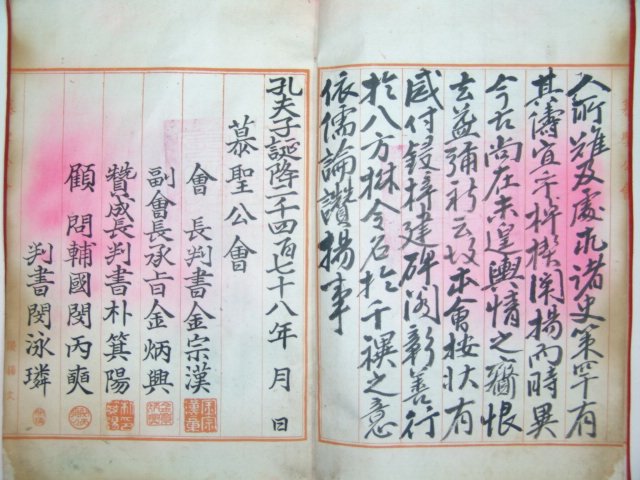 人所難及處求諸史策罕有
其儔宜乎棹楔闡揚而時異
今古尚在未遑輿情之齎恨
去益彌新云故本會按狀有
感付鋟梓建碑閣彰善行
於八方楙令名於千禩之意
依儒論讚揚事
孔夫子誕降二千四百七十八年 月 日
慕聖公會
會長判書金宗漢
副會長承旨金炳興
贊成長判書朴箕陽
顧問輔國閔丙奭
判書閔泳璘